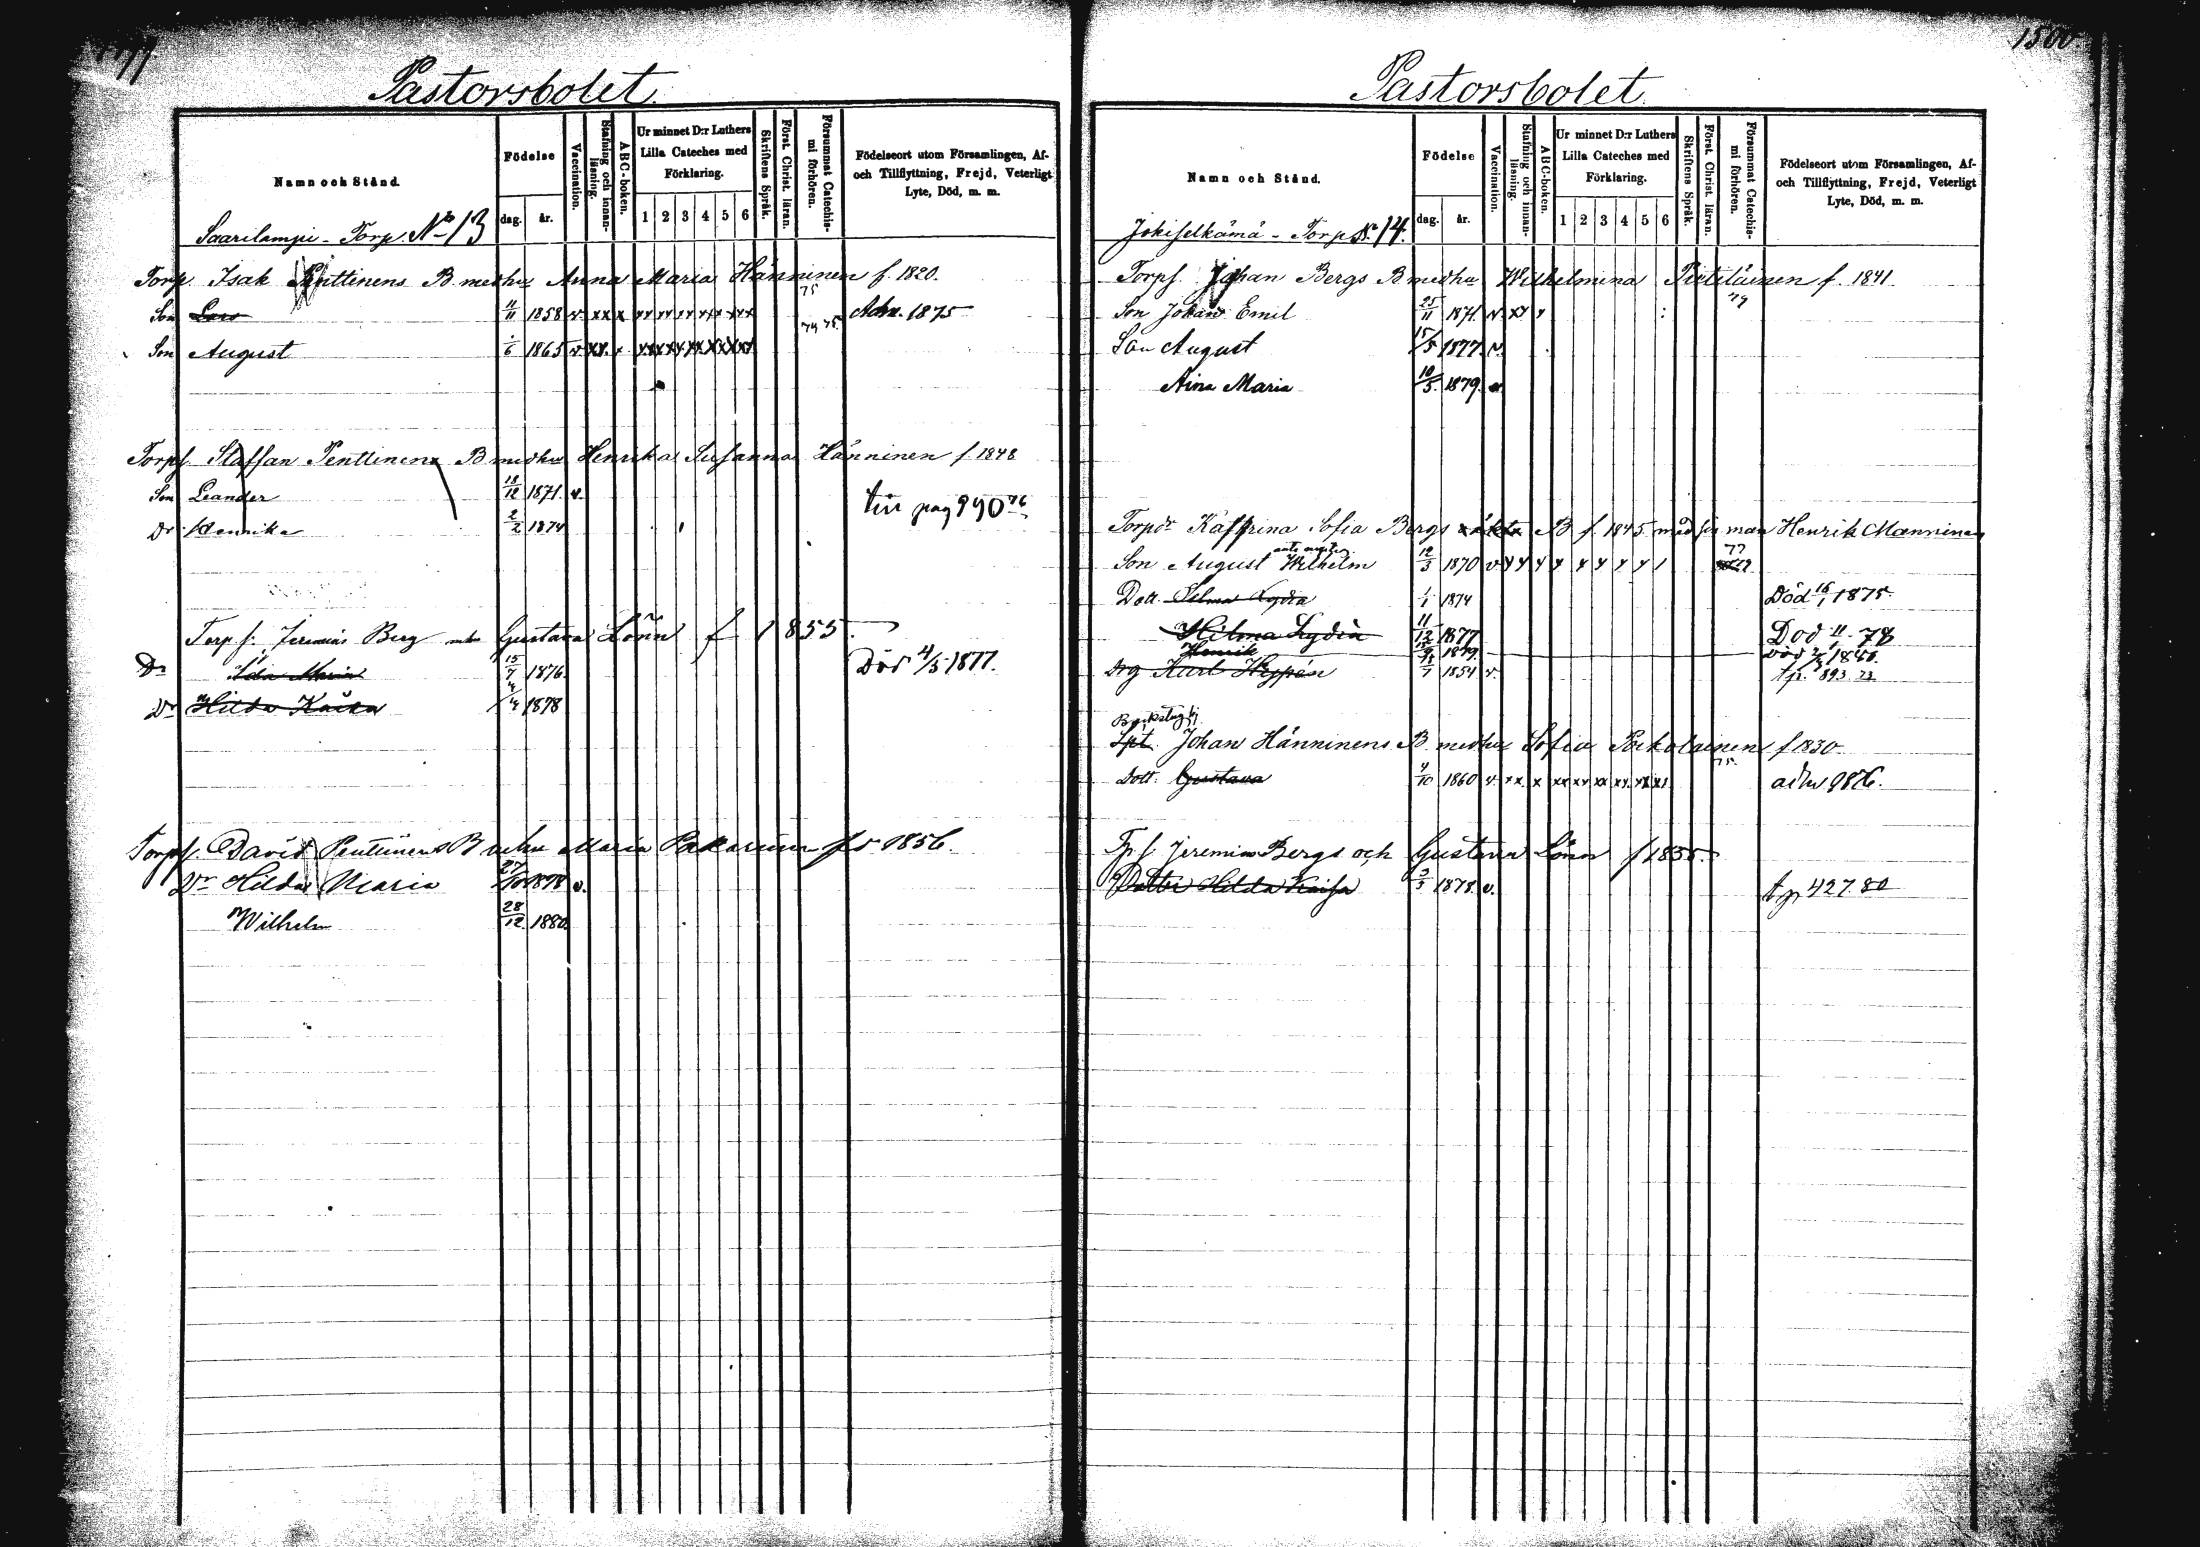 Pastorsbolet.
Namn och Stånd.
Födelse
dag. år.
Vaccination.
Stafning och innanläsning.
ABC-boken.
Ur minnet D:r Luthers Lilla Cateches med Förklaring.
1 2 3 4 5 6
Skriftens Språk.
Först. Christ. läran.
Försummat Catechismi förhören.
Födelseort utom Församlingen, Af- och Tillflyttning, Frejd, Veterligt Lyte, Död, m. m.
Saarilampi - Torp. No 13
Torp. Isak Penttinens B medhu Anna Maria Hänninen f. 1820.
Son Lars 4/11 1858 v xx x xx xx xx xxx xxx 75 Adm. 1875
Son August 1/6 1865 v xx x 74 75
Torpf. Staffan Penttinens B medhu Henrika Susanna Hänninen f. 1848
Son Leander 18/12 1871. v.
Dr Hennika 2/2 1874
till pag 990 76
Torpf. Jeremias Berg Gustava Lönn f 1855.
Dr Ida Maria 15/7 1876. Död 4/5 1877.
Dr Hilda Kaisa 4/4 1878
Torpf. David Penttinens B Maria Pakarinen 1856.
Dr Hilda Maria 27/10 1878 v.
Wilhelm 28/12 1880.
1500
Pastorsbolet
Namn och Stånd.
Födelse
dag. år.
Vaccination.
Stafning och innanläsning.
ABC-boken.
Ur minnet D:r Luthers Lilla Cateches med Förklaring.
1 2 3 4 5 6
Skriftens Språk.
Först. Christ. läran.
Försummat Catechismi förhören.
Födelseort utom Församlingen, Af- och Tillflyttning, Frejd, Veterligt Lyte, Död, m. m.
Jokiselkämä - Torp No 14.
Torpf. Johan Bergs B medhu Wilhelmina f. 1841.
Son Johan Emil 25/11 1871. v xx x 79
Son August 15/5 1877. v.
Aina Maria 10/5. 1879. v.
Torpdr Kathrina Sofia Bergs B f. 1845 med sin man Henrik Manninen
Son August Wilhelm 12/3 1870 v 77
Dott. Selma Lydia 1/1 1874 Död 16/1 1875.
Hilma Lydia 11/12 1877 Död 11/1 78
Henrik 1879. Död 1880.
Drg Karl Heppén 1854 v. tp. 893 73
Backstug hj
Spt. Johan Hänninens B medhu Sofia f 1830.
Dott. Gustava 4/10 1860 v. xx. x xx xx xx 75.
Tp f. Jeremias Bergs och Gustava Lönn f 1855.
Dotter Hilda Kaisa 3/3 1878. v. tp 427. 80